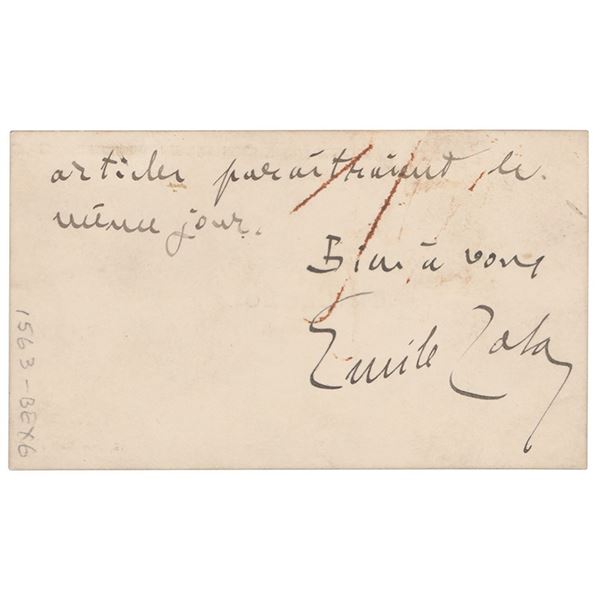 articles paraîtraient le
même jour.
Bien à vous
Emile Zola
1563-BEX6